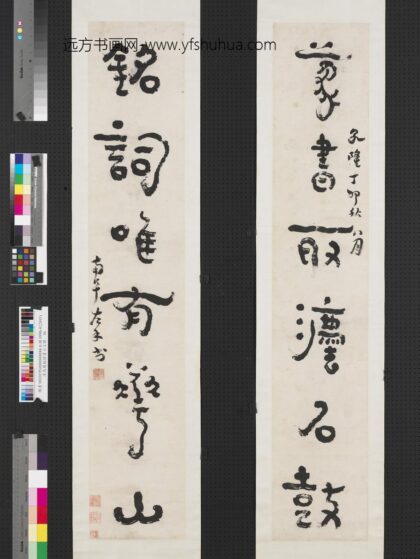 远方书画网-www.yfshuhua.com
篆書取灋石鼓
乾隆丁卯秋八月
銘詞唯有華山
南阜左手書